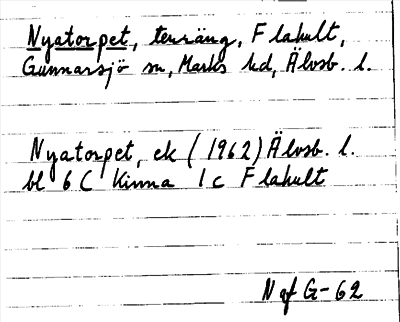 Nyatorpet, terräng, Flahult,
Gunnarsjö sn, Marks hd, Älvsb. l.
Nyatorpet, ek (1962) Älvsb. l.
bl 6 C Kinna 1 c Flahult
N af G-62